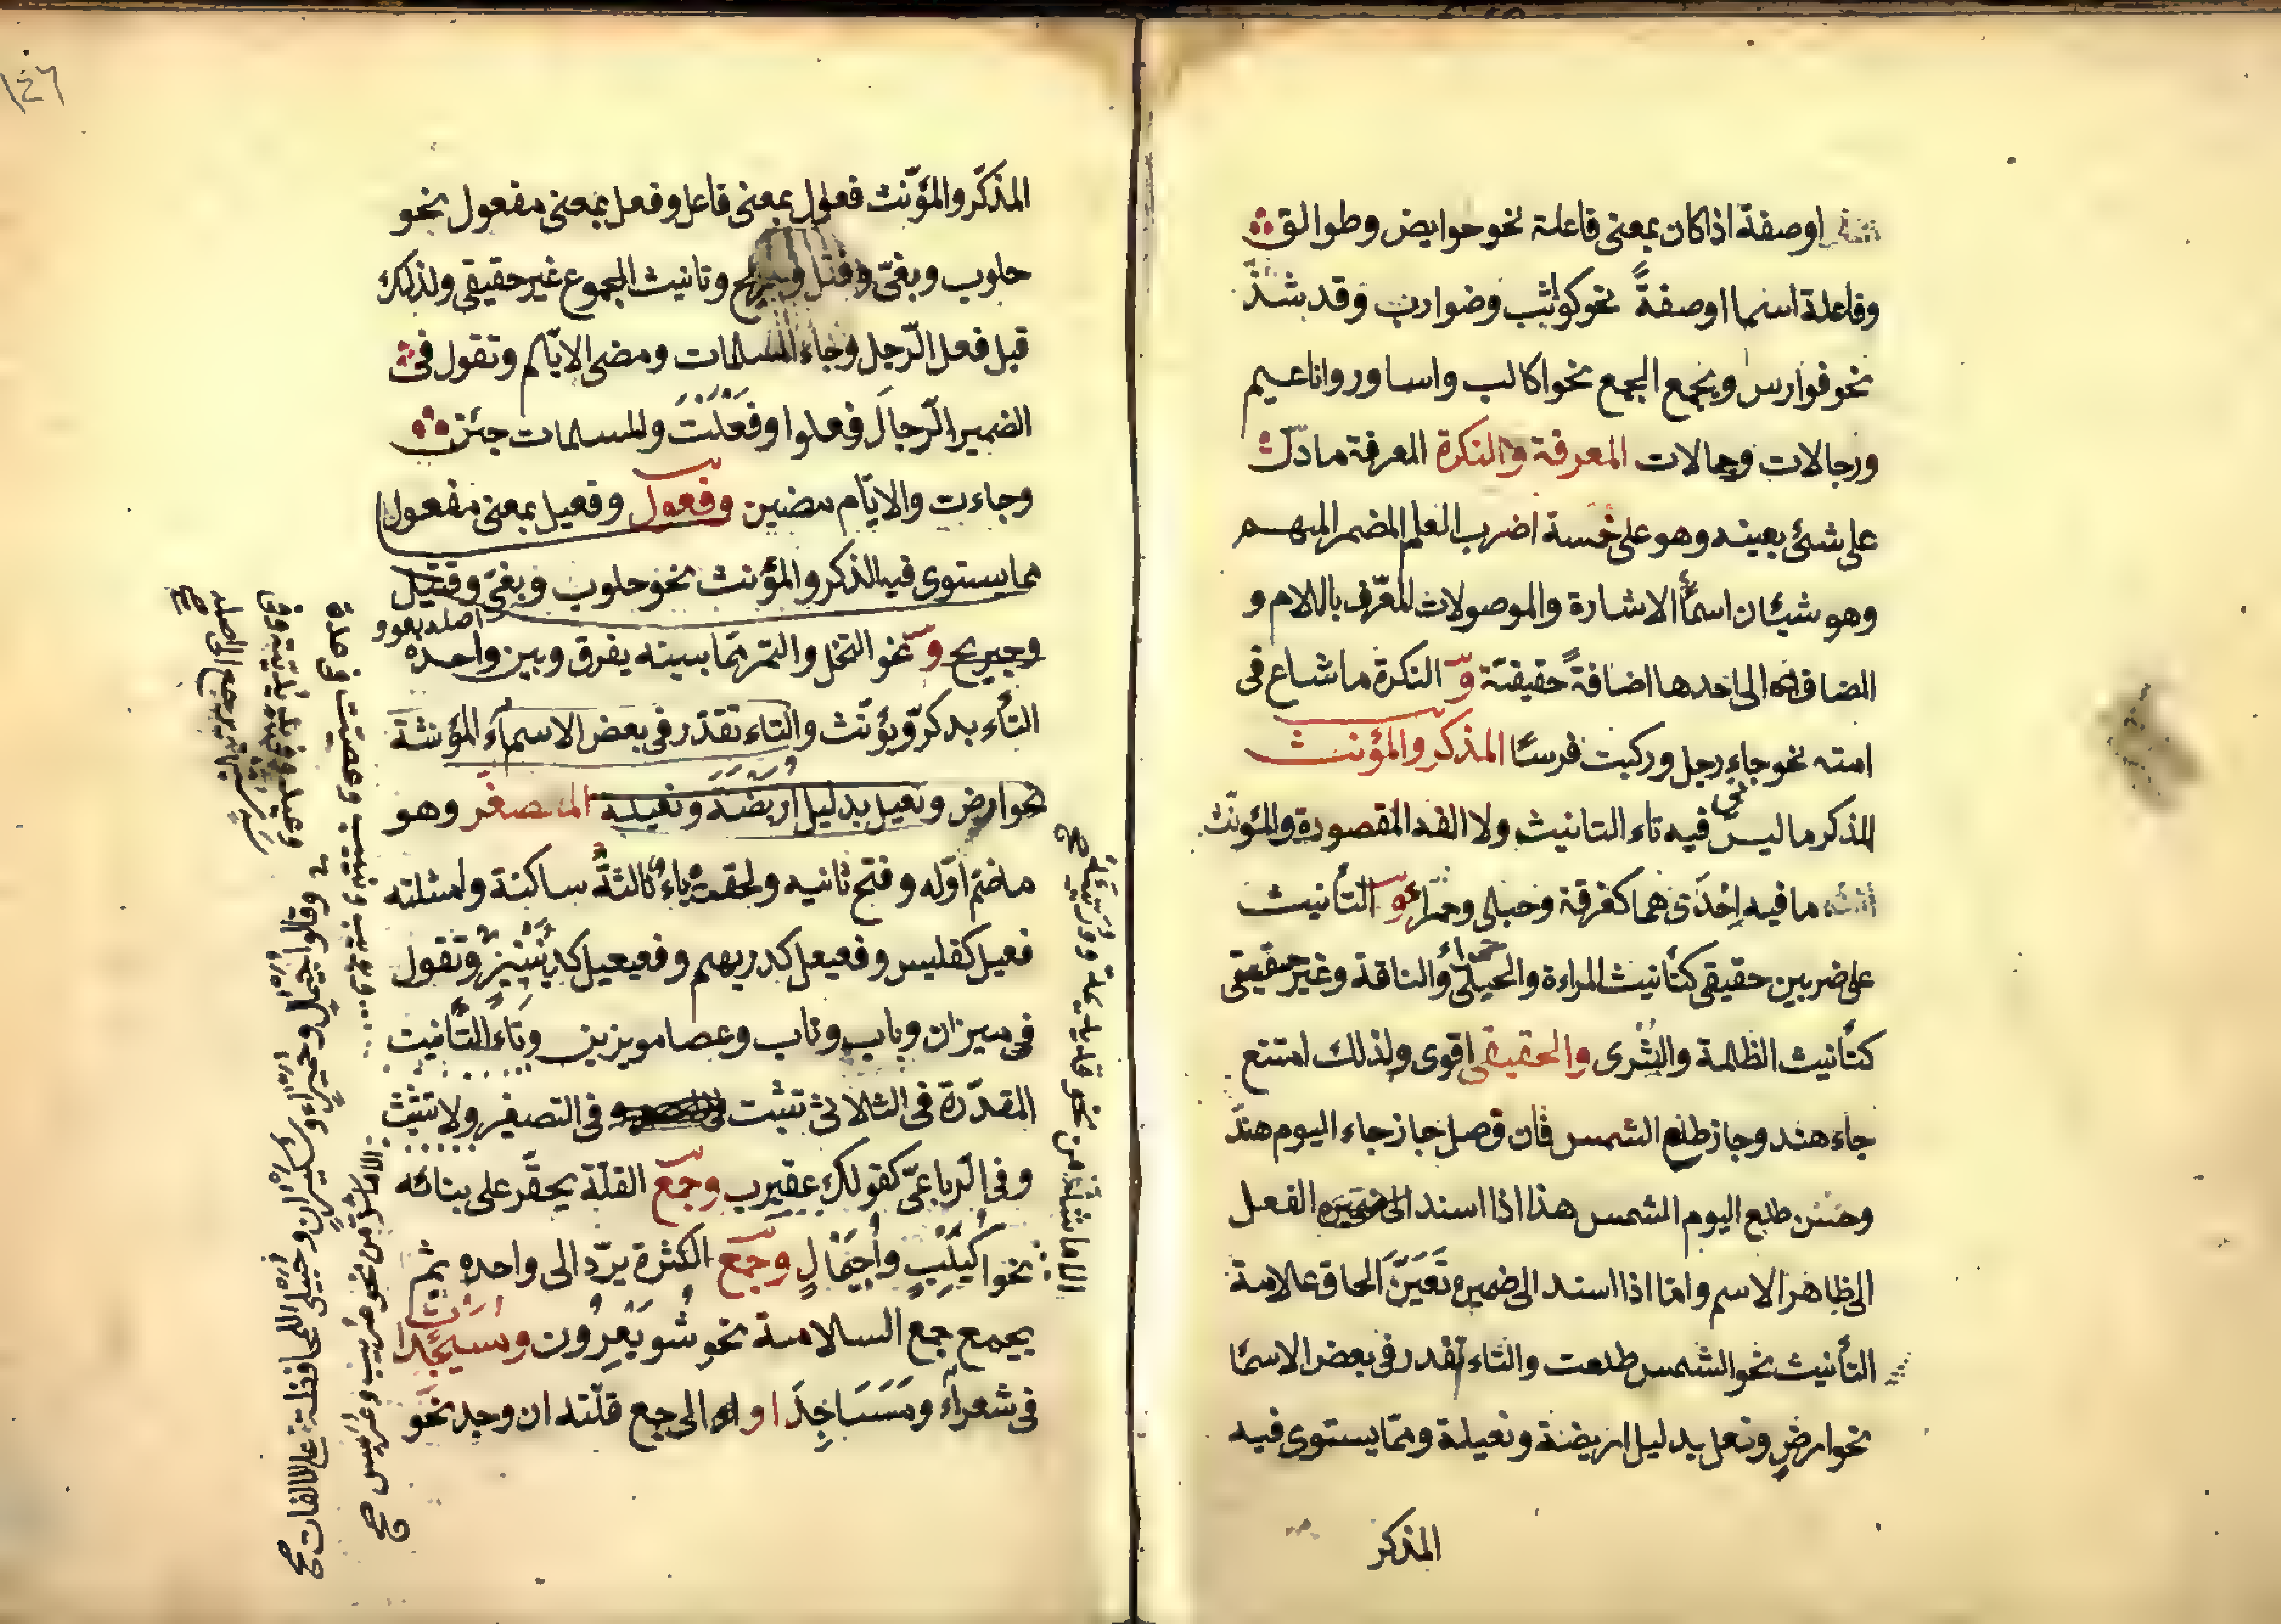 اوصفة اذا كان بمعنى فاعلة نحو حوايض وطوالق
وفاعلة اسما اوصفةً نحو كواثب وضوارب وقد شذّ
نحو فوارس ويجمع الجمع نحو اكالب واساور واناعيم
ورجالات وجمالات المعرفة والنكرة المعرفة مادّل
على شئ بعينه وهو على خمسة اضرب العلم المضمر المبهم
وهو شيئان اسماء الاشارة والموصولات المعّرف باللام و
المضاف الى احدها اضافةً حقيقيّة و النكرة ما شاع فى
امته نحو جاء رجل وركبت فرسًا المذكر والمؤنث
المذكر ما ليس فيه تاء التانيث ولا الف المقصورة والمؤنّث
ما فيه اِحْدَى هما كغرفة وحبلى وحمراء و التأنيث
على ضربين حقيقى كتأنيث المراءة والحبلى والناقة وغير حقيقى
كتأنيث الظلمة والبُشْرى والحقيقى اقوى ولذلك امتنع
جاء هند وجاز طلع الشمس فان فصل جاز جاء اليوم هندٌ
وحسن طلع اليوم الشمس هذا اذا اسند الفعل
الى ظاهر الاسم وامّا اذا اسند الى ضميره تَعَيَّنَ الحاق علامة
التأنيث نحو الشمس طلعت والتاء تقدر فى بعض الاسما
نحو ارض ونعل بدليل اريضة ونعيلة وممّا يستوى فيه
المذكر
١٤٦
المذكّر والمؤنّث فعول بمعنى فاعل وفعيل بمعنى مفعول نحو
حلوب وبغىّ وقتيل وجريح وتانيث الجموع غير حقيقى ولذلك
قيل فعل الرّجل وجاء المسلمات ومضى الايّام وتقول فى
الضمير الرّجال فعلوا وفَعَلَتْ والمسلمات جئن
وجاءت والايّام مضين وفعول وفعيل بمعنى مفعول
مما يستوى فيه المذكر والمؤنث نحو حلوب وبغى وقتيل
اصله بغوو
وجريح و نحو النخل والتمر ممّا بينه يفرق وبين واحده
التاء يذكرّ ويؤنّث والتاء تقدّر فى بعض الاسماء المؤنثة
نحو ارض ونعيل بدليل اُرَيْضَة ونعيلة المصغّر وهو
ما ضم اوّله وفتح ثانيه ولحقته ياء ثالثةٌ ساكنة وامثلته
فعيل كفليس وفعيعل كدريهم وفعيعيل كدُنَيْنِيْر وتقول
فى ميزان وباب وناب وعصا مويزين وتاء التأنيث
المقدّرة فى الثلاثى تثبت فى التصغير ولا تثبت
وفى الرّباعىّ كقولك عقيرب وجمع القلّة يحقّر على بنائه
نحو اُكَيْلِبٍ واُجَيْمَالٍ وجَمْع الكثرة يردّ الى واحده ثم
يجمع جمع السلامة نحو شُوَيْعِرُون ومسيجدات
فى شعراء ومَسَاجِدَ او الى جمع قلّته ان وجد نحو
الا ما شذ من نحو عريب وعريس صح
وقالوا اجيمال وحميراء وسكيران وحبيلى للمحافظة على الالفات صح